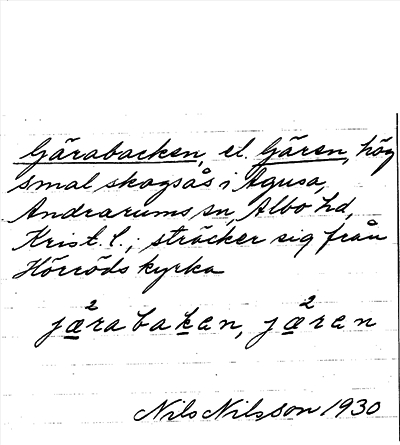 Gärabacken, el. Gären, hög
smal skogsås i Agusa,
Andrarums sn, Albo hd,
Krist. l.; sträcker sig från
Hörröds kyrka
j²æraba̱ken, j²æren
Nils Nilsson 1930